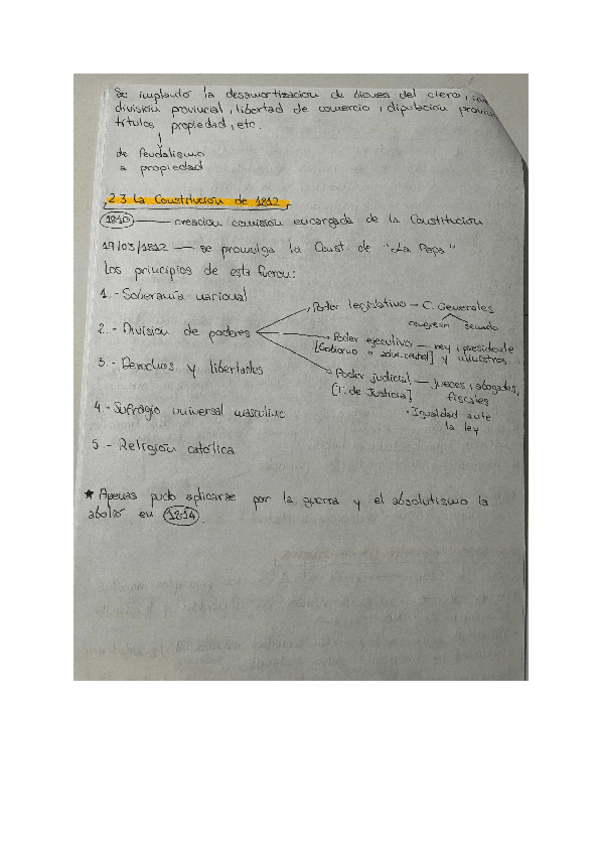 Se implantó la desamortización de bienes del clero,
división provincial, libertad de comercio, diputación
títulos propiedad, etc.
de feudalismo
a propiedad
2.3 La Constitución de 1812
1810 — creación comisión encargada de la Constitución
19/03/1812 — se promulga la Const. de "La Pepa"
Los principios de esta fueron:
1.- Soberanía nacional
Poder legislativo - C. Generales
congreso senado
2.- División de poderes
Poder ejecutivo - rey, presidente
[Gobierno o adm. central] y ministros
3.- Derechos y libertades
Poder judicial - jueces, abogados,
[T. de Justicia] fiscales
4.- Sufragio universal masculino
· Igualdad ante
la ley
5.- Religión católica
★ Apenas pudo aplicarse por la guerra y el absolutismo la
abolió en 1814.